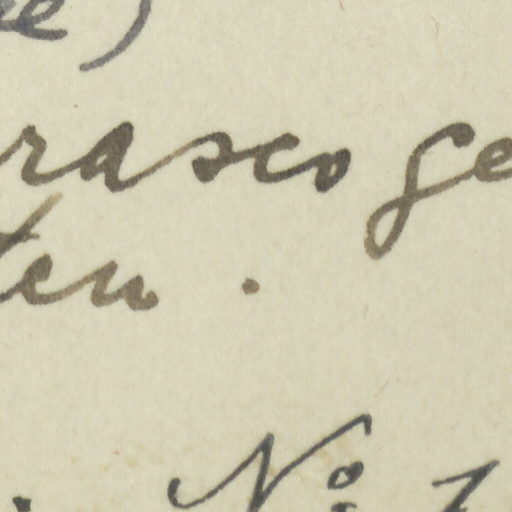 ee)
rasco ge
ten.
. No 1